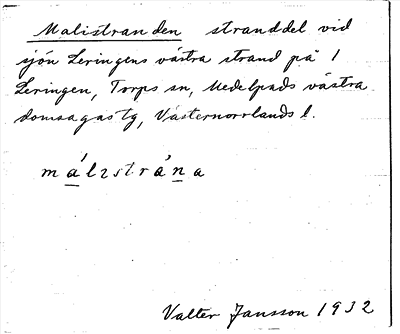 Malistranden stranddel vid
sjön Leringens västra strand på 1
Leringen, Torps sn, Medelpads västra
domsagas tg, Västernorrlands l.
má̱lıstrá̱ṉa
Valter Jansson 1932